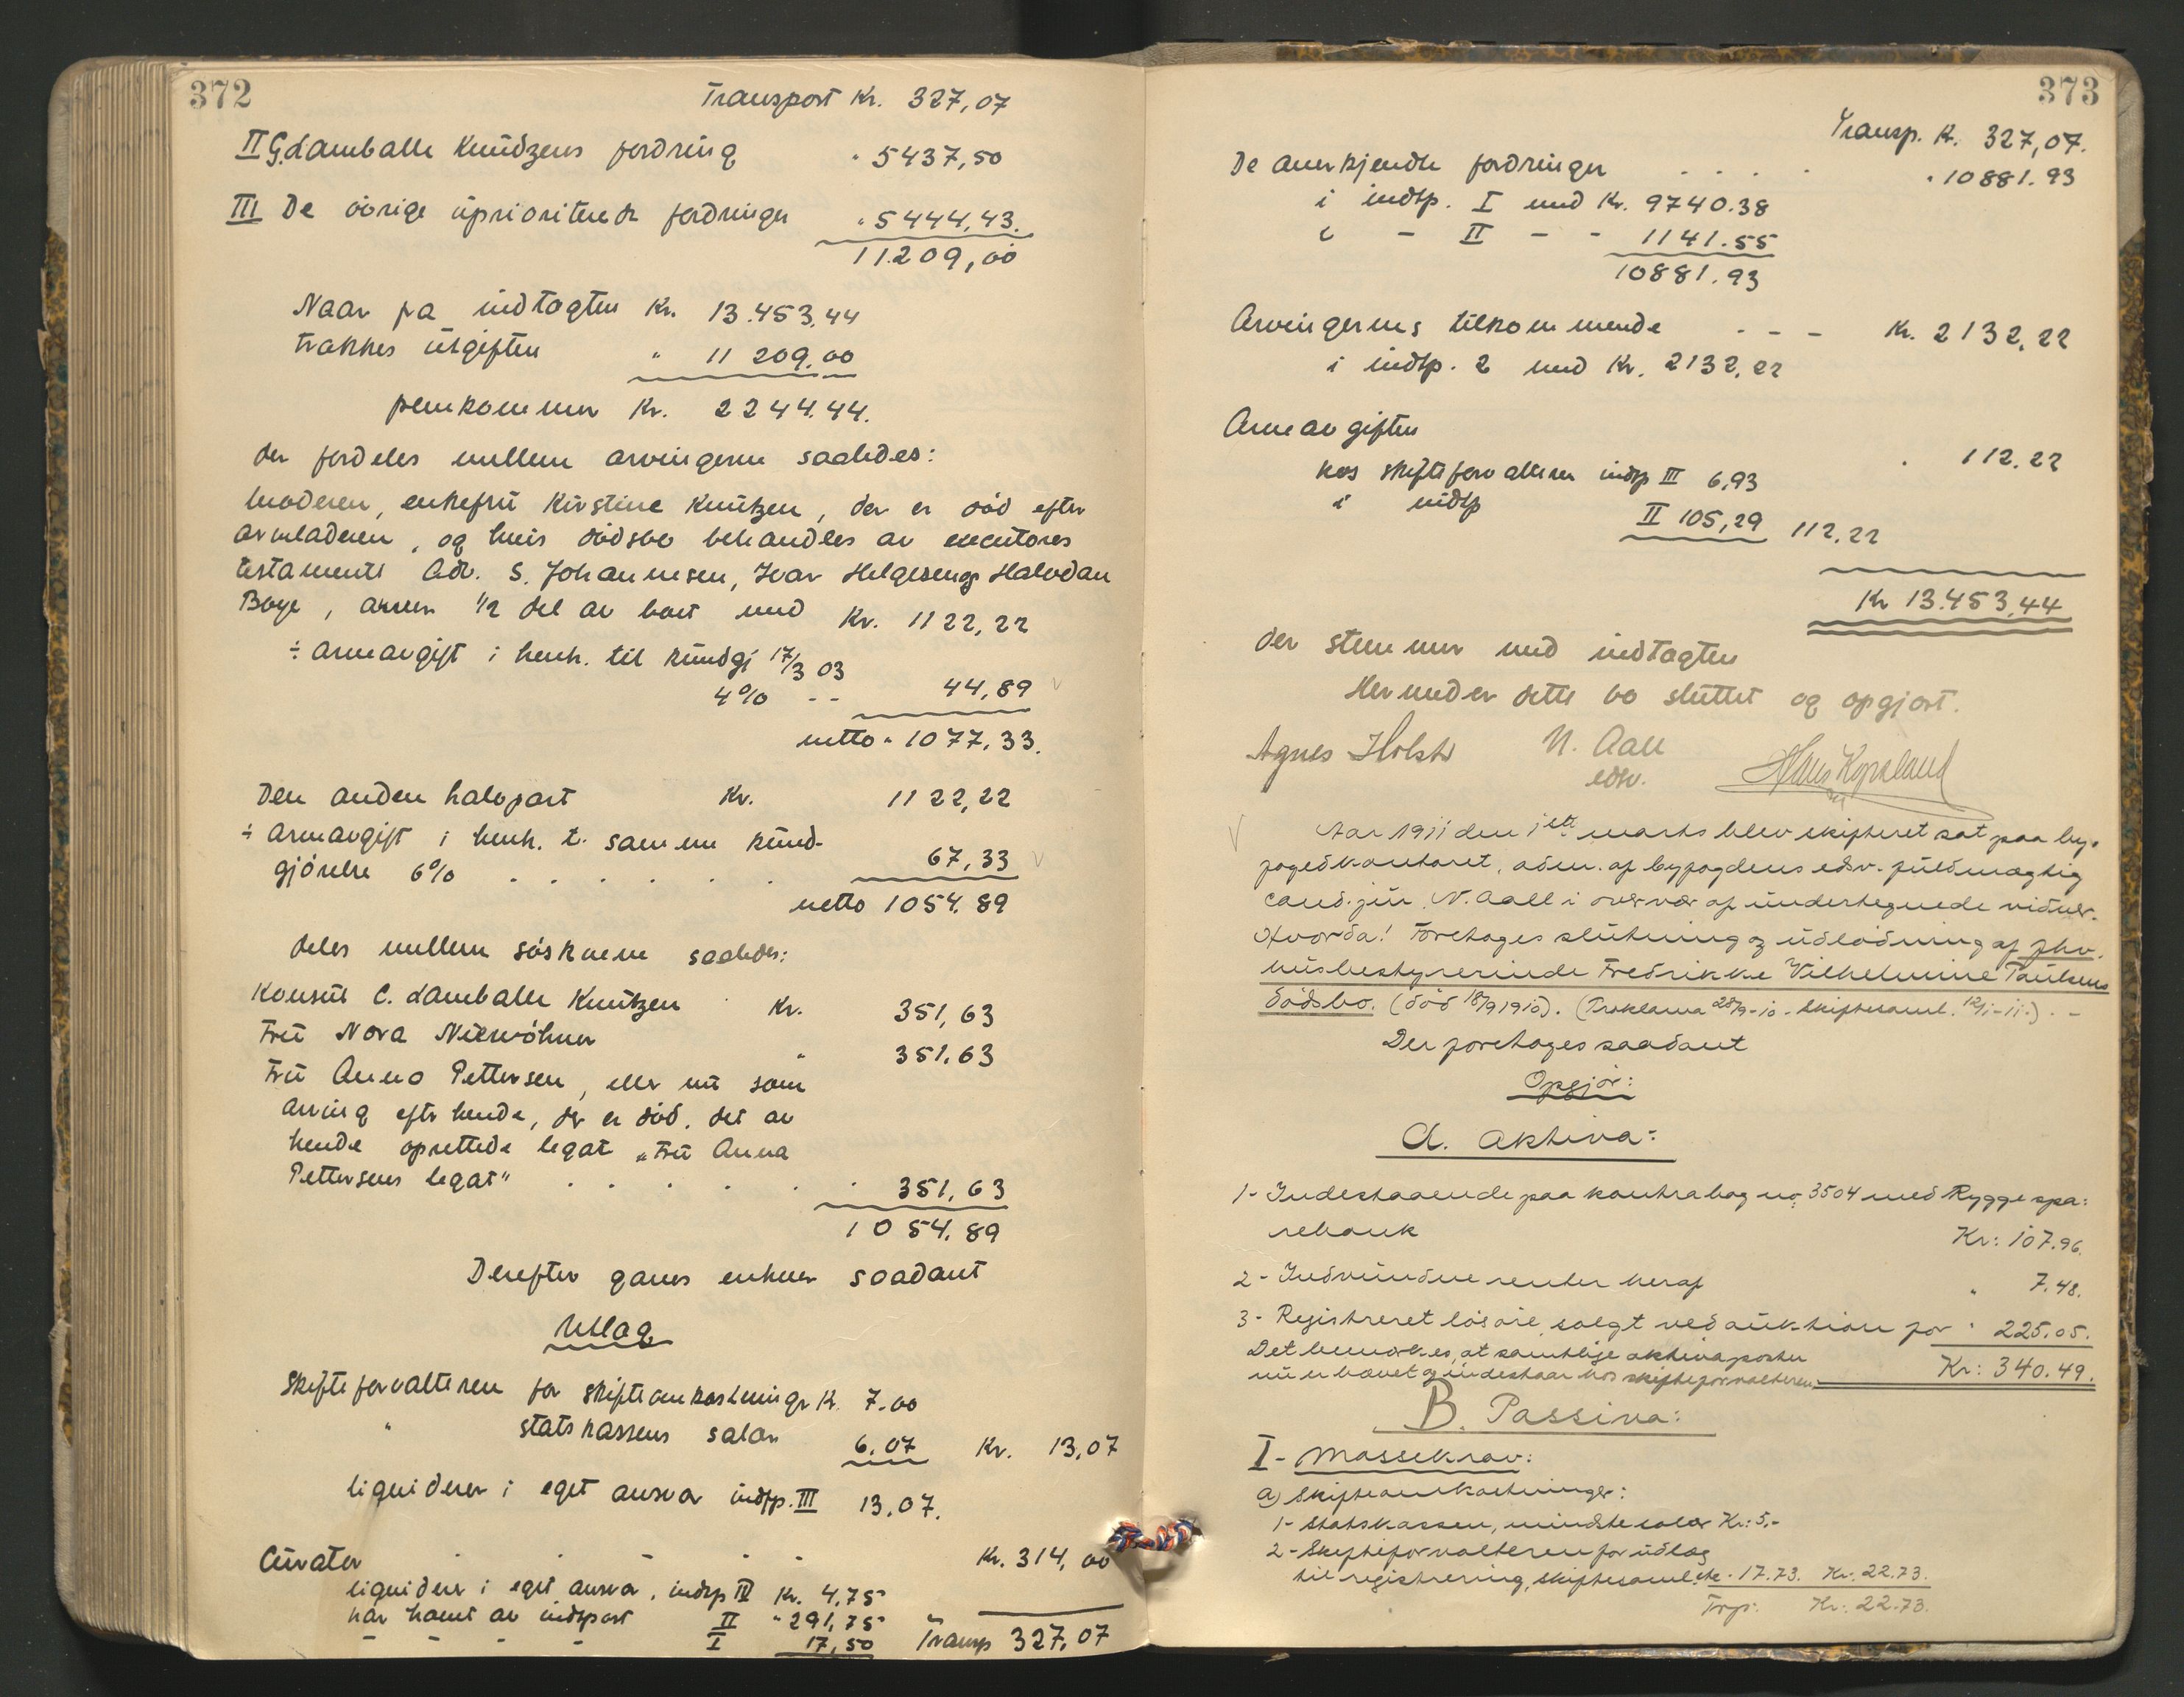 372
Transport Kr. 327,07
II G. Lamballe Knüdzens fordring " 5437,50
III De övrige üprioriterede fordringer " 5444,43.
11.209,00
Naar fra indtægten Kr. 13.453,44
trækkes ütgiften " 11 209.00
fremkommer Kr. 2244.44.
der fordeles mellem arvingerne saaledes:
Moderen, enkefrü Kirstine Knützen, der er död efter
arveladeren, og hvis dödsbo behandles av executores
testamenti Adv. S. Johannesen, Ivar Helgesen og Halvdan
Boye, arver 1/2 del av boet med Kr. 1122,22
÷ arveavgift i henh. til kündgj 17/3 03
4% -- 44,89
netto " 1077.33.
Den anden halvpart Kr. 1122,22
÷ arveavgift i henh. t. samme künd-
gjörelse 6% . . . . . . 67,33
netto 1054.89
deles mellem söskerne saaledes:
Konsül C. Lamballe Knützen Kr. 351,63
Frü Nora Niewöhner " 351.63
Frü Anna Pettersen, eller nü som
arving efter hende, der er död, det av
hende oprettede legat "Frü Anna
Pettersens legat" . . . . . 351,63
1054.89
Derefter gaves enhver saadant
Utlæg
Skifteforvalteren for skifteomkostninger Kr. 7.00
" statskassens salær 6.07 Kr. 13,07
liquiderer i eget ansvar indtp. III 13.07.
Cürator . . - - - Kr. 314,00
liquiderer i eget ansvar, indtp IV Kr. 4,75
har hævet av indtpost II " 291,75
- - - - I 17,50 Transp 327,07
373
Transp. Kr. 327,07.
De anerkjendte fordringer . . . . " 10881.93
i indtp. I med Kr. 9740.38
i - II - - 1141.55
10881.93
Arvingernes tilkommende - - - Kr. 2132,22
i indtp. 2 med Kr. 2132,22
Arveavgiften " 112.22
hos skifteforvalteren indtp III 6,93
i indtp II 105,29 112,22
Kr 13.453,44
der stemmer med indtægten
Hermed er dette bo sluttet og opgjort.
Agnes Holst N. Aall Hans Kopseland
edsv.
Aar 1911 den 1ste marts blev skifteret sat paa by-
fogedkontoret, adm. af byfogdens edsv. füldmægtig
cand. jür. N. Aall i overvær af ündertegnede vidner.
Hvorda! Foretoges slütning og üdlodning af fhv.
hüsbestyrerinde Fredrikke Vilhelmine Paulsens
dödsbo. (död 18/9 1910). (Proklama 28/9-10. Skiftesaml. 12/1-11.). -
Der foretoges saadant
Opgjör:
A. Aktiva:
1- Indestaaende paa kontrabog no. 3504 med Rygge spa:
rebank Kr: 107.96.
2- Indvündne renter heraf " 7.48.
3- Registreret lösöre, solgt ved aüktion for " 225.05.
Det bemærkes, at samtlige aktivaposter
nü er hævet og indestaar hos skifteforvalteren. Kr: 340.49.
B. Passiva:
I- Massekrav:
a) Skifteomkostninger:
1- Statskassen, mindstesalær Kr: 5.-
2- Skifteforvalteren for üdlæg
til registrering, skiftesaml. etc. " 17.73. Kr: 22.73.
Trp: Kr: 22.73.